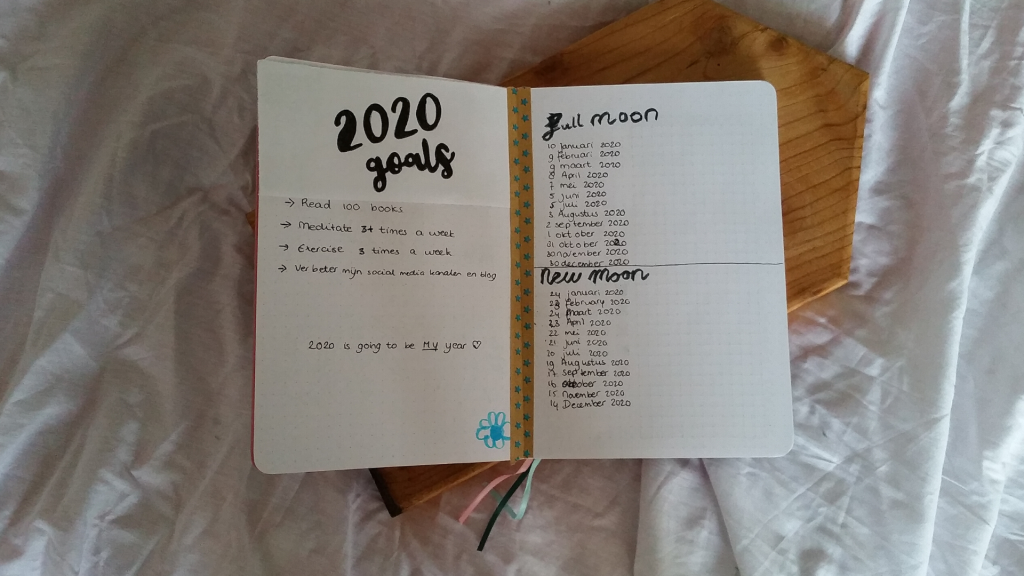 2020
goals
→ Read 100 books
→ Meditate 3+ times a week
→ Exercise 3 times a week
→ Verbeter mijn social media kanalen en blog
2020 is going to be MY year ♡
Full moon
10 Januari 2020
9 februari 2020
9 maart 2020
8 April 2020
7 mei 2020
5 juni 2020
5 juli 2020
3 Augustus 2020
2 september 2020
1 oktober 2020
31 oktober 2020
30 november 2020
30 december 2020
New moon
24 januari 2020
23 February 2020
24 Maart 2020
23 April 2020
22 mei 2020
21 juni 2020
20 juli 2020
19 Augustus 2020
17 September 2020
16 oktober 2020
15 November 2020
14 December 2020